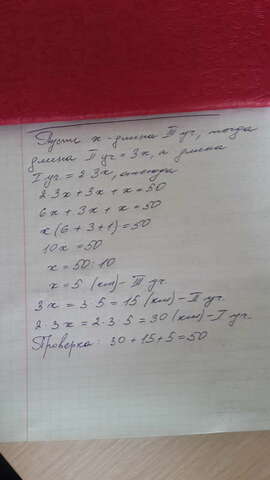 Пусть x - длина III уч, тогда
длина II уч = 3x, а длина
I уч = 2·3x, откуда
2·3x + 3x + x = 50
6x + 3x + x = 50
x(6+3+1) = 50
10x = 50
x = 50:10
x = 5 (км) - III уч.
3x = 3·5 = 15 (км) - II уч.
2·3x = 2·3·5 = 30 (км) - I уч.
Проверка: 30+15+5=50